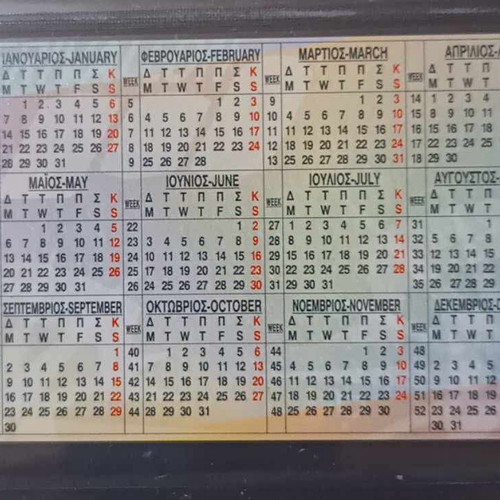 ΙΑΝΟΥΑΡΙΟΣ-JANUARY
Δ Τ Τ Π Π Σ Κ
M T W T F S S
1 2 3 4 5 6
7 8 9 10 11 12 13
14 15 16 17 18 19 20
21 22 23 24 25 26 27
28 29 30 31
ΦΕΒΡΟΥΑΡΙΟΣ-FEBRUARY
Δ Τ Τ Π Π Σ Κ
WEEK M T W T F S S
5 1 2 3
6 4 5 6 7 8 9 10
7 11 12 13 14 15 16 17
8 18 19 20 21 22 23 24
9 25 26 27 28
ΜΑΡΤΙΟΣ-MARCH
Δ Τ Τ Π Π Σ Κ
WEEK M T W T F S S
9 1 2 3
10 4 5 6 7 8 9 10
11 11 12 13 14 15 16 17
12 18 19 20 21 22 23 24
13 25 26 27 28 29 30 31
ΑΠΡΙΛΙΟΣ-A
Δ Τ Τ Π
WEEK M T W T
14 1 2 3 4
15 8 9 10 11
16 15 16 17 18
17 22 23 24 25
18 29 30
ΜΑΪΟΣ-MAY
Δ Τ Τ Π Π Σ Κ
M T W T F S S
1 2 3 4 5
6 7 8 9 10 11 12
13 14 15 16 17 18 19
20 21 22 23 24 25 26
27 28 29 30 31
ΙΟΥΝΙΟΣ-JUNE
Δ Τ Τ Π Π Σ Κ
WEEK M T W T F S S
22 1 2
23 3 4 5 6 7 8 9
24 10 11 12 13 14 15 16
25 17 18 19 20 21 22 23
26 24 25 26 27 28 29 30
ΙΟΥΛΙΟΣ-JULY
Δ Τ Τ Π Π Σ Κ
WEEK M T W T F S S
27 1 2 3 4 5 6 7
28 8 9 10 11 12 13 14
29 15 16 17 18 19 20 21
30 22 23 24 25 26 27 28
31 29 30 31
ΑΥΓΟΥΣΤΟΣ-
Δ Τ Τ Π
WEEK M T W T
31 1
32 5 6 7 8
33 12 13 14 15
34 19 20 21 22
35 26 27 28 29
ΣΕΠΤΕΜΒΡΙΟΣ-SEPTEMBER
Δ Τ Τ Π Π Σ Κ
M T W T F S S
1
2 3 4 5 6 7 8
9 10 11 12 13 14 15
16 17 18 19 20 21 22
23 24 25 26 27 28 29
30
ΟΚΤΩΒΡΙΟΣ-OCTOBER
Δ Τ Τ Π Π Σ Κ
WEEK M T W T F S S
40 1 2 3 4 5 6
41 7 8 9 10 11 12 13
42 14 15 16 17 18 19 20
43 21 22 23 24 25 26 27
44 28 29 30 31
ΝΟΕΜΒΡΙΟΣ-NOVEMBER
Δ Τ Τ Π Π Σ Κ
WEEK M T W T F S S
44 1 2 3
45 4 5 6 7 8 9 10
46 11 12 13 14 15 16 17
47 18 19 20 21 22 23 24
48 25 26 27 28 29 30
ΔΕΚΕΜΒΡΙΟΣ-D
Δ Τ Τ Π
WEEK M T W T
48
49 2 3 4 5
50 9 10 11 12
51 16 17 18 19
52 23 24 25 26
30 31